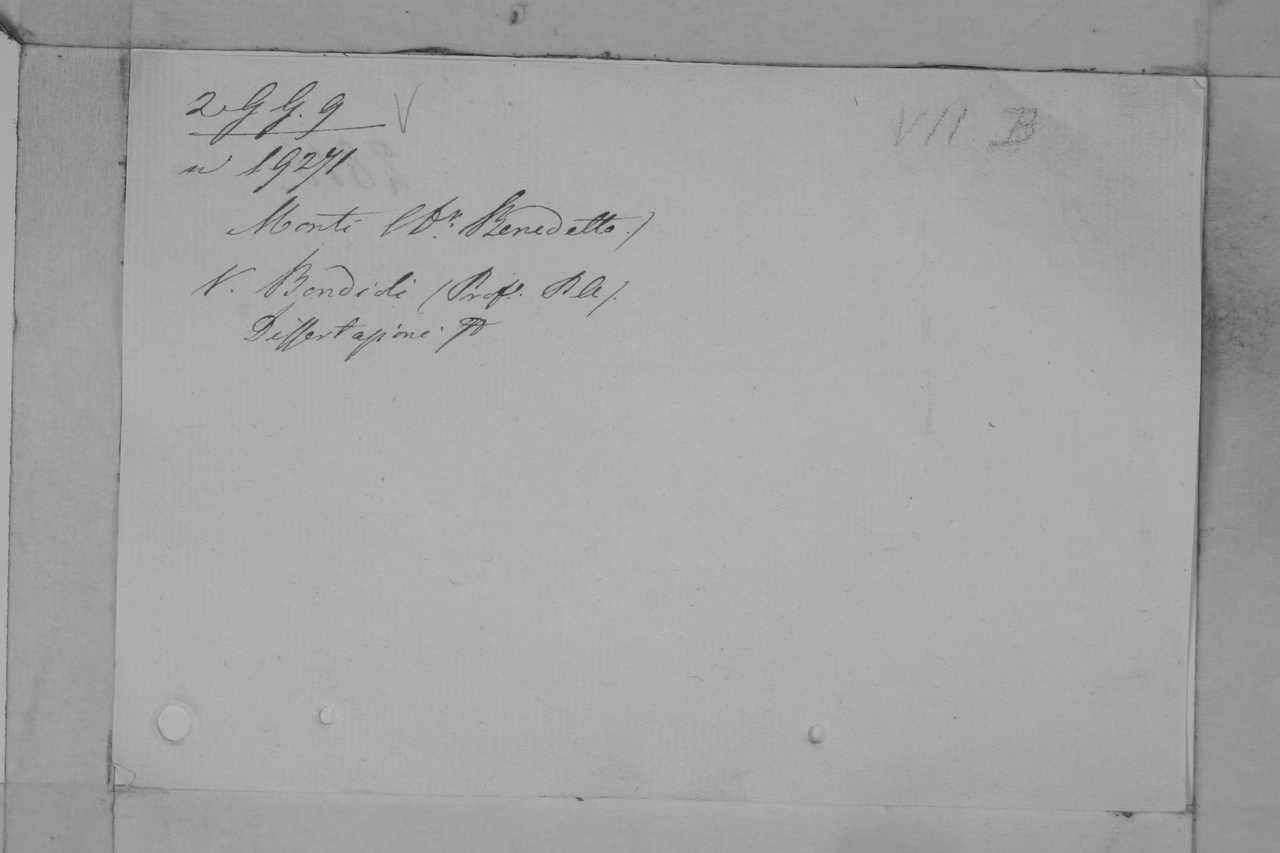 2. G G. 9 V
VII B
n 19271
Monti (Dr. Benedetto.)
V. Bondidi (Prof. P. A).
Dissertazione.